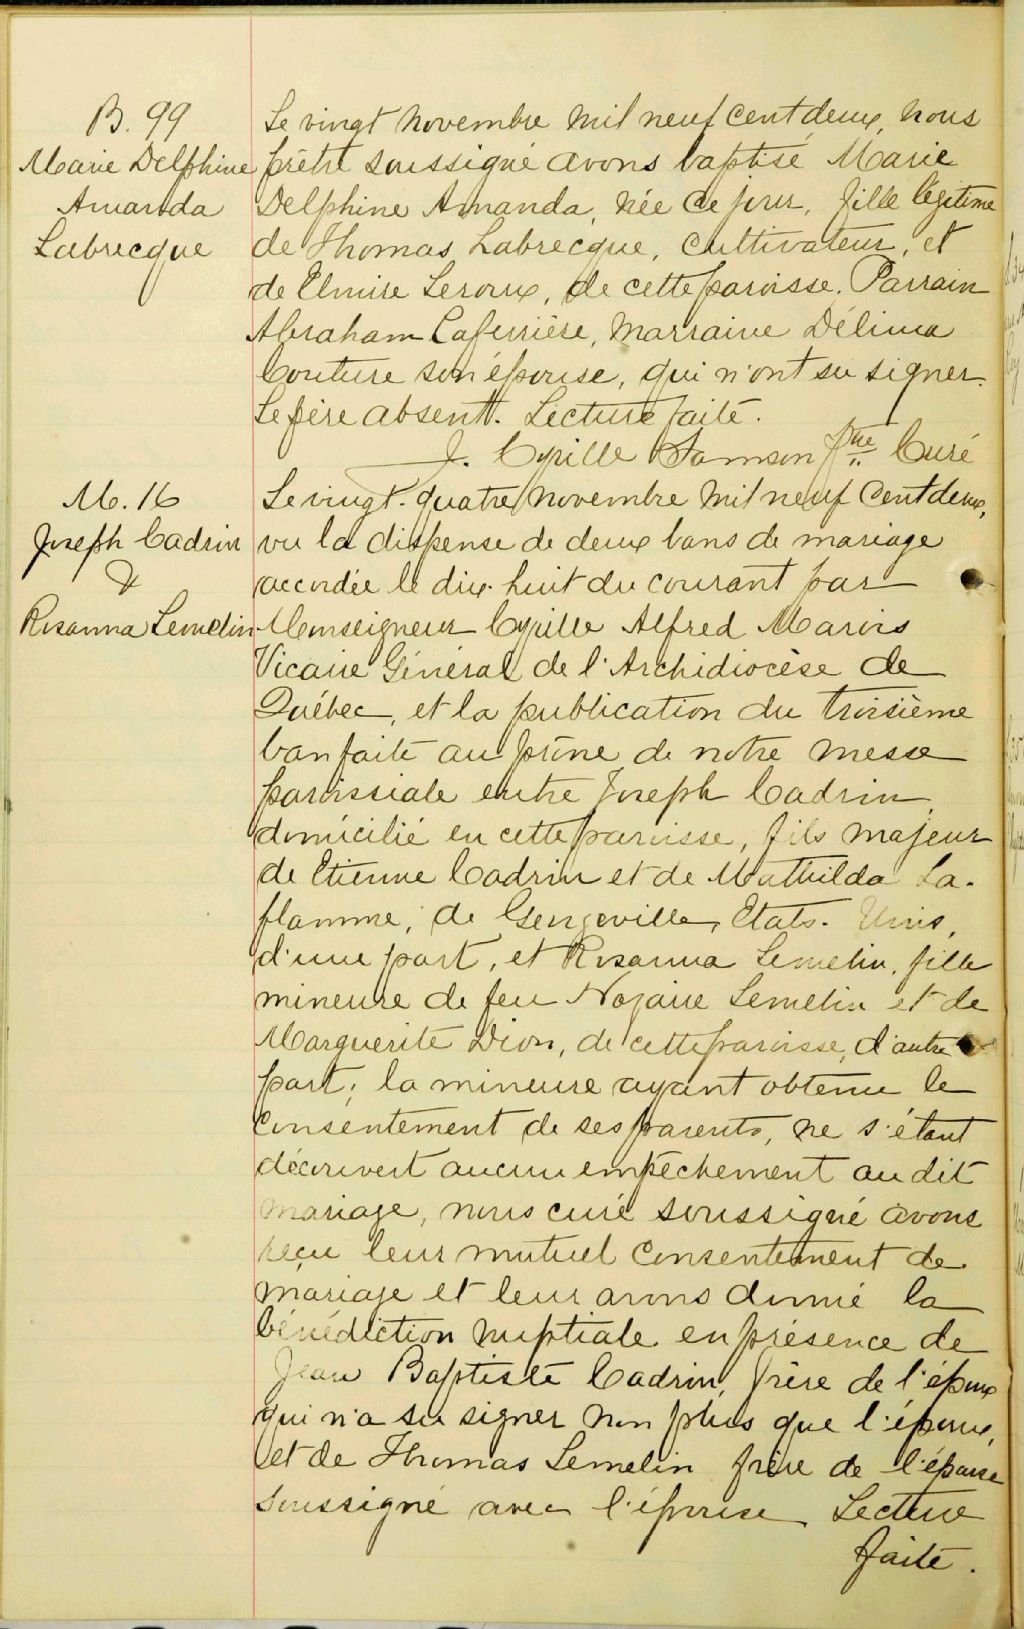 B. 99
Marie Delphine
Amanda
Labrecque
Le vingt novembre mil neuf cent deux, nous
prêtre soussigné avons baptisé Marie
Delphine Amanda, née ce jour, fille légitime
de Thomas Labrecque, cultivateur, et
de Elmire Leroux, de cette paroisse. Parrain
Abraham Laferrière, marraine Délima
Couture son épouse, qui n'ont su signer.
Le père absent. Lecture faite.
J. Cyrille Samson Ptre Curé
M. 16
Joseph Cadrin
&
Rosanna Lemelin
Le vingt-quatre novembre mil neuf cent deux,
vu la dispense de deux bans de mariage
accordée le dix-huit du courant par
Monseigneur Cyrille Alfred Marois
Vicaire Général de l'Archidiocèse de
Québec, et la publication du troisième
ban faite au prône de notre messe
paroissiale entre Joseph Cadrin,
domicilié en cette paroisse, fils majeur
de Etienne Cadrin et de Mathilda La-
flamme, de Etats-Unis,
d'une part, et Rosanna Lemelin, fille
mineure de feu Nazaire Lemelin et de
Marguerite Dion, de cette paroisse, d'autre
part; la mineure ayant obtenu le
consentement de ses parents, ne s'étant
découvert aucun empêchement au dit
mariage, nous curé soussigné avons
reçu leur mutuel consentement de
mariage et leur avons donné la
bénédiction nuptiale en présence de
Jean Baptiste Cadrin, frère de l'époux
qui n'a su signer non plus que l'époux,
et de Thomas Lemelin frère de l'épouse
soussigné avec l'épouse. Lecture
faite.